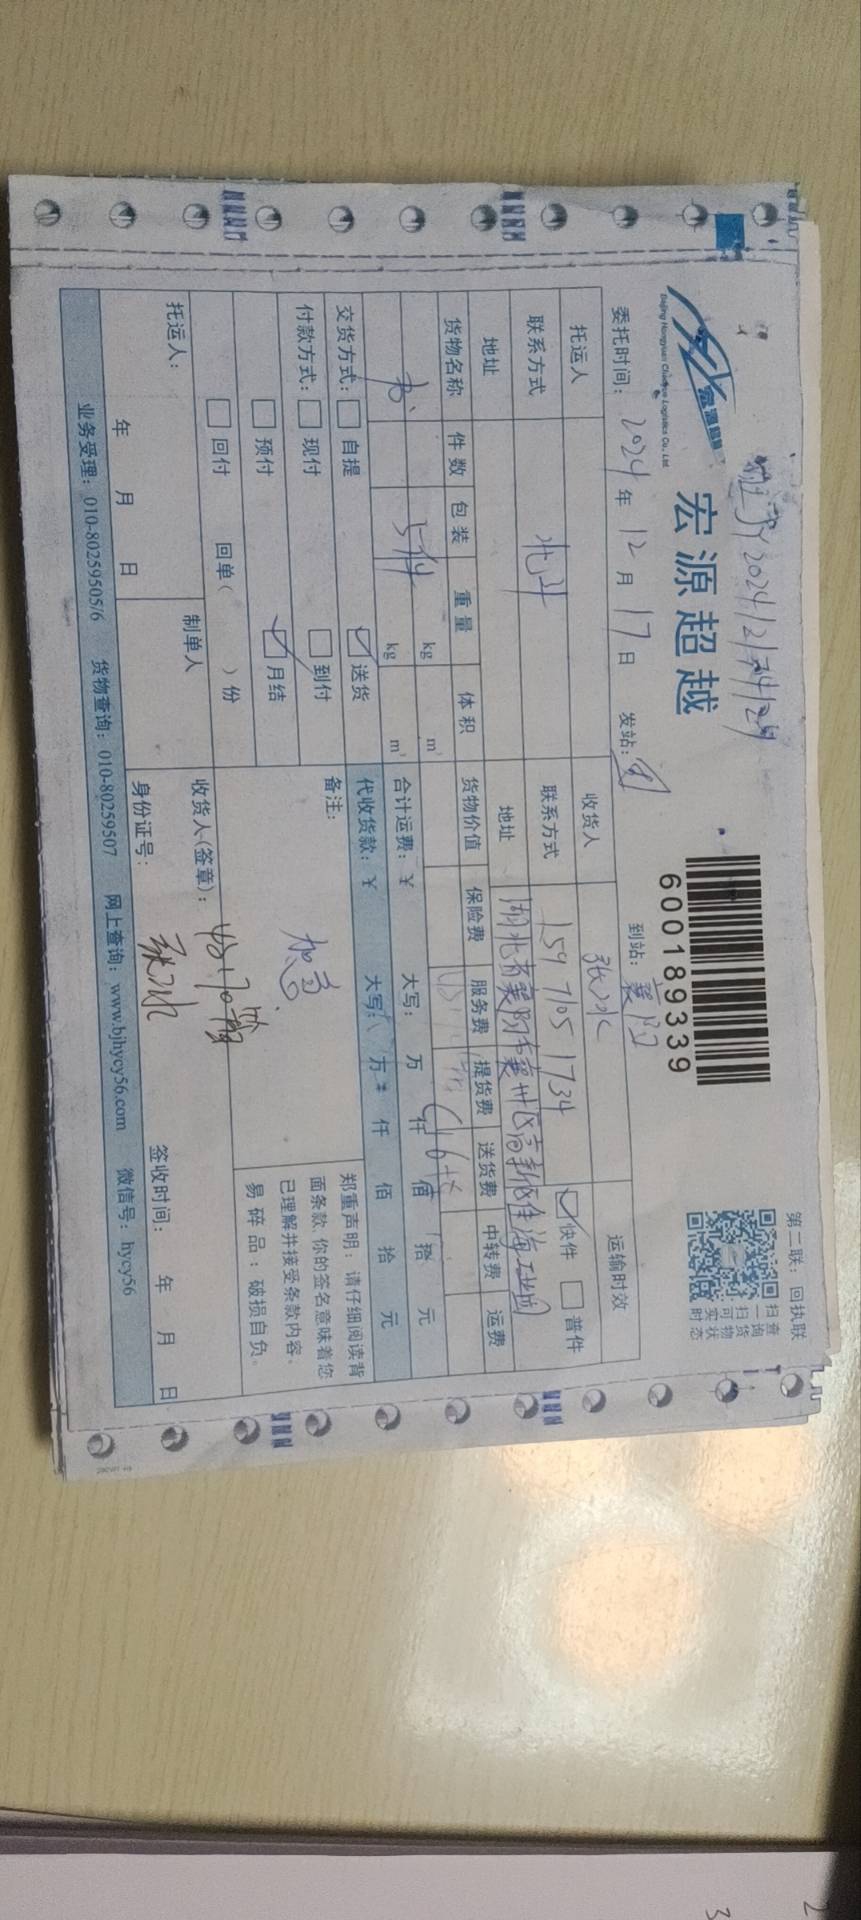 第二联：回执联
扫查
一询
扫货
可物
实状
时态
宏源超越
Beijing Hongyuan Chaoyue Logistics Co., Ltd.
宏源超越
600189339
委托时间：2024年12月17日 发站： 到站：襄阳
托运人 收货人 张冰 运输时效
联系方式 联系方式 159 7105 1734 快件 普件
地址 地址 湖北省襄阳市襄州区高新区
货物名称 件数 包装 重量 体积 货物价值 保险费 服务费 提货费 送货费 中转费 运费
5件 kg m³
kg m³ 合计运费：￥ 大写： 万 仟 佰 拾 元
交货方式： 自提 送货 代收货款：￥ 大写： 万 仟 佰 拾 元
付款方式： 现付 到付 备注： 加急
预付 月结
回付 回单（ ）份
郑重声明：请仔细阅读背
面条款,你的签名意味着您
已理解并接受条款内容。
易碎品：破损自负。
托运人： 制单人 收货人(签章)：
年 月 日 身份证号： 张冰 签收时间： 年 月 日
业务受理：010-80259505/6 货物查询：010-80259507 网上查询：www.bjhycy56.com 微信号：hycy56